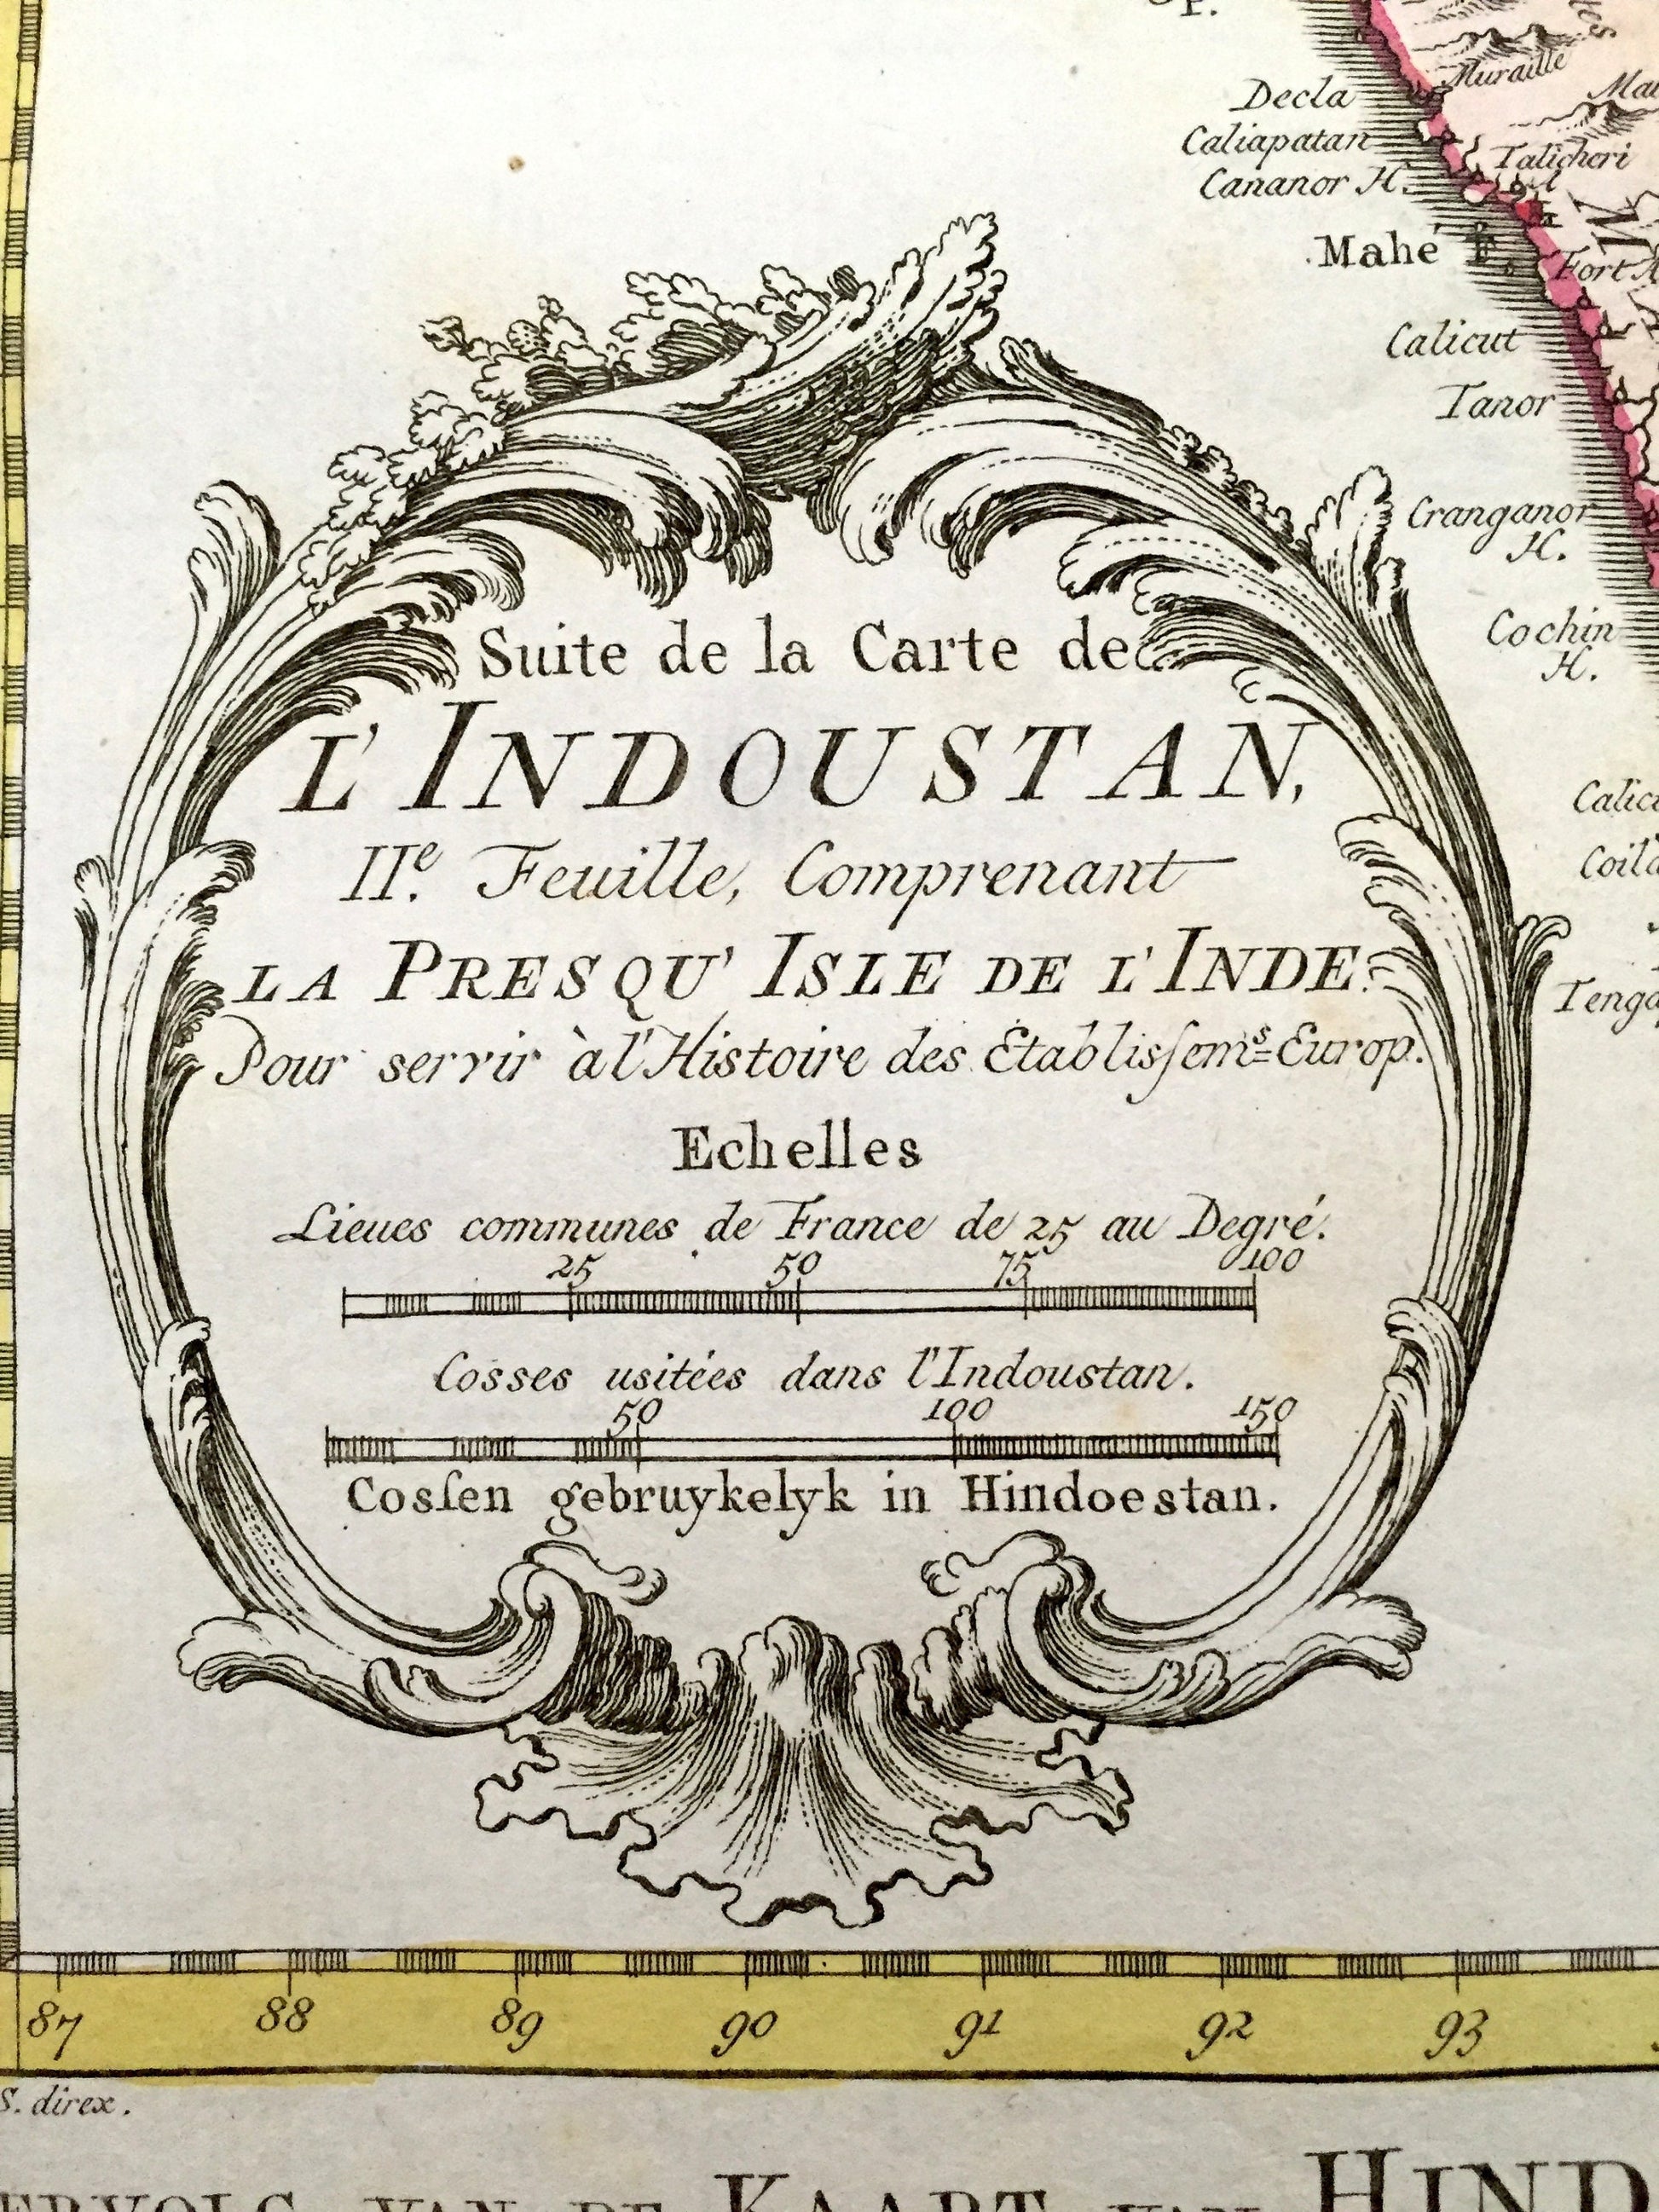 Muraille
Decla
Caliapatan
Talicheri
Cananor H.
Mahé
Fort
Calicut
Tanor
Cranganor
H.
Cochin
H.
Suite de la Carte de
L'INDOUSTAN,
IIe. Feuille, Comprenant
LA PRESQU' ISLE DE L'INDE.
Pour servir à l'Histoire des Etablisſems= Europ.
Echelles
Lieues communes de France de 25 au Degré.
25 50 75 100
Cosses usitées dans l'Indoustan.
50 100 150
Cosſen gebruykelyk in Hindoestan.
87 88 89 90 91 92 93
S. direx.
VAN DE KAART VAN HIND